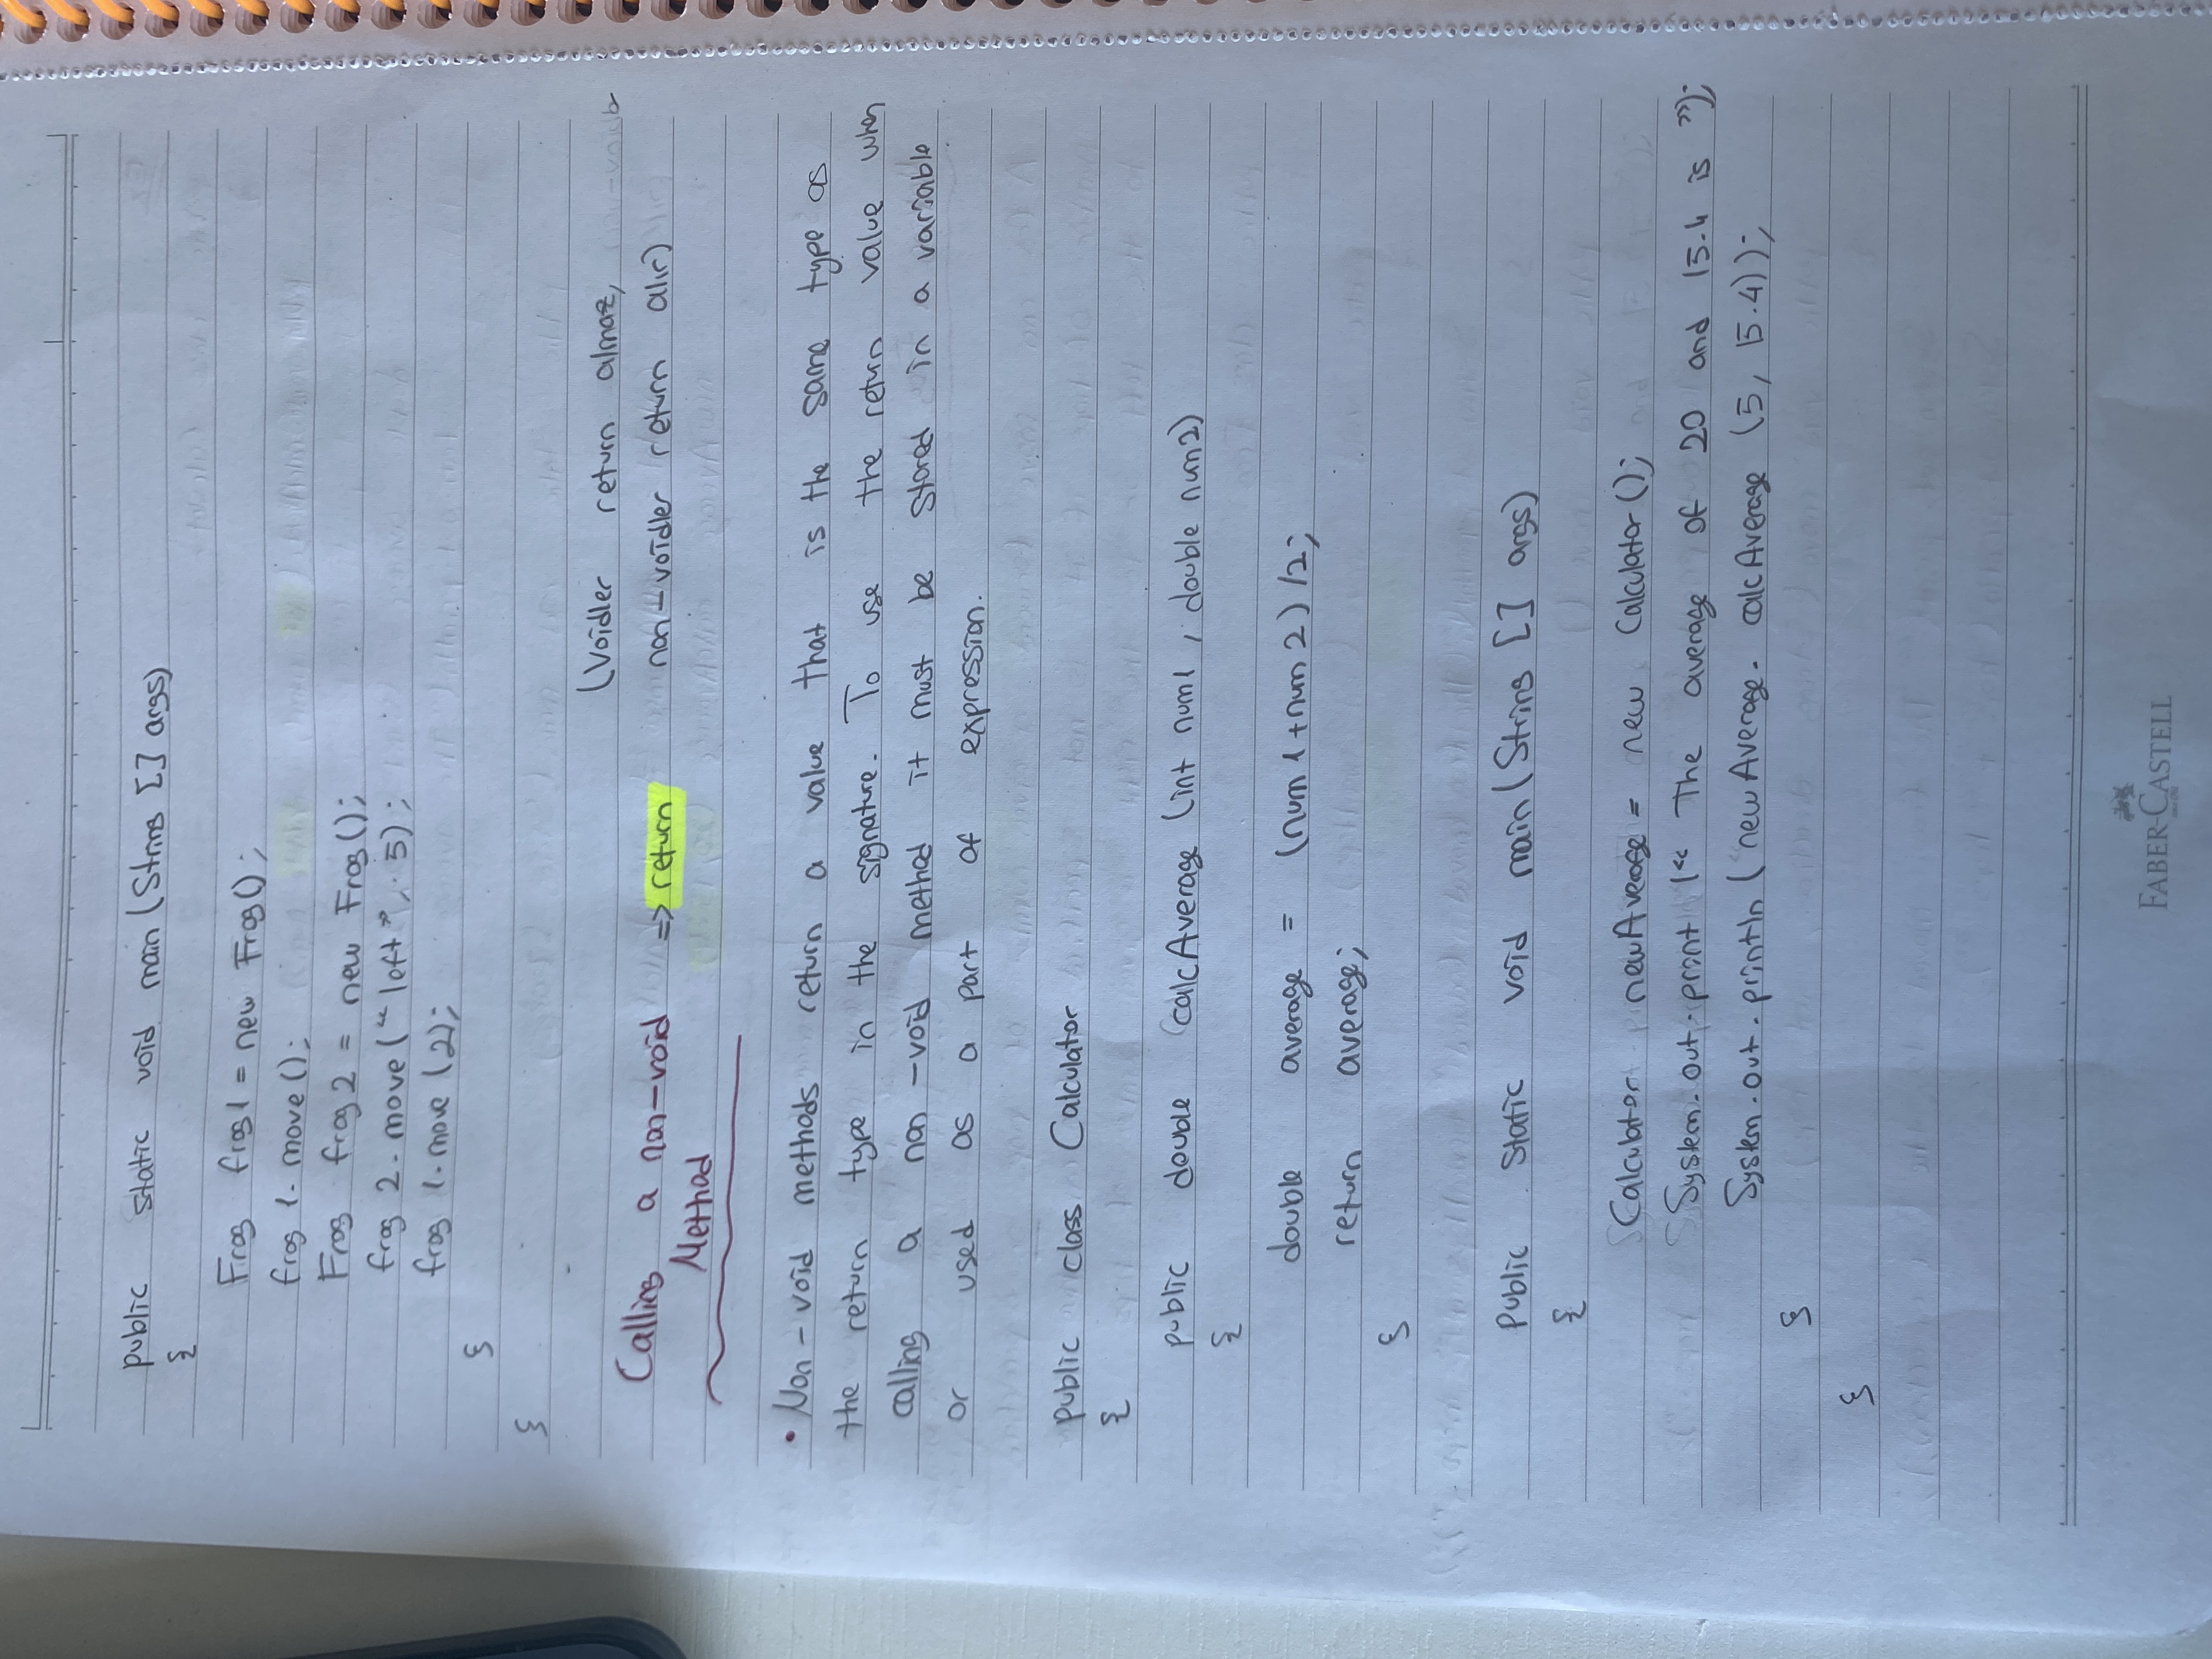 public static void main (String [] args)
{
Frog frog1 = new Frog();
frog 1. move ();
Frog frog 2 = new Frog();
frog 2. move (“left”, 5);
frog 1. move (2);
}
}
(Voidler return almaz,
Calling a non-void => return non-voidler return alır)
Method
• Non-void methods return a value that is the same type as
the return type in the signature. To use the return value when
calling a non-void method it must be stored in a variable
or used as a part of expression.
public class Calculator
{
public double calcAverage (int num1, double num2)
{
double average = (num1+num2)/2;
return average;
}
public static void main (String [] args)
{
Calculator newAverage = new Calculator ();
System.out.print (“ The average of 20 and 15.4 is ”);
System.out.println (newAverage. calcAverage (5, 15.4));
}
}
FABER-CASTELL